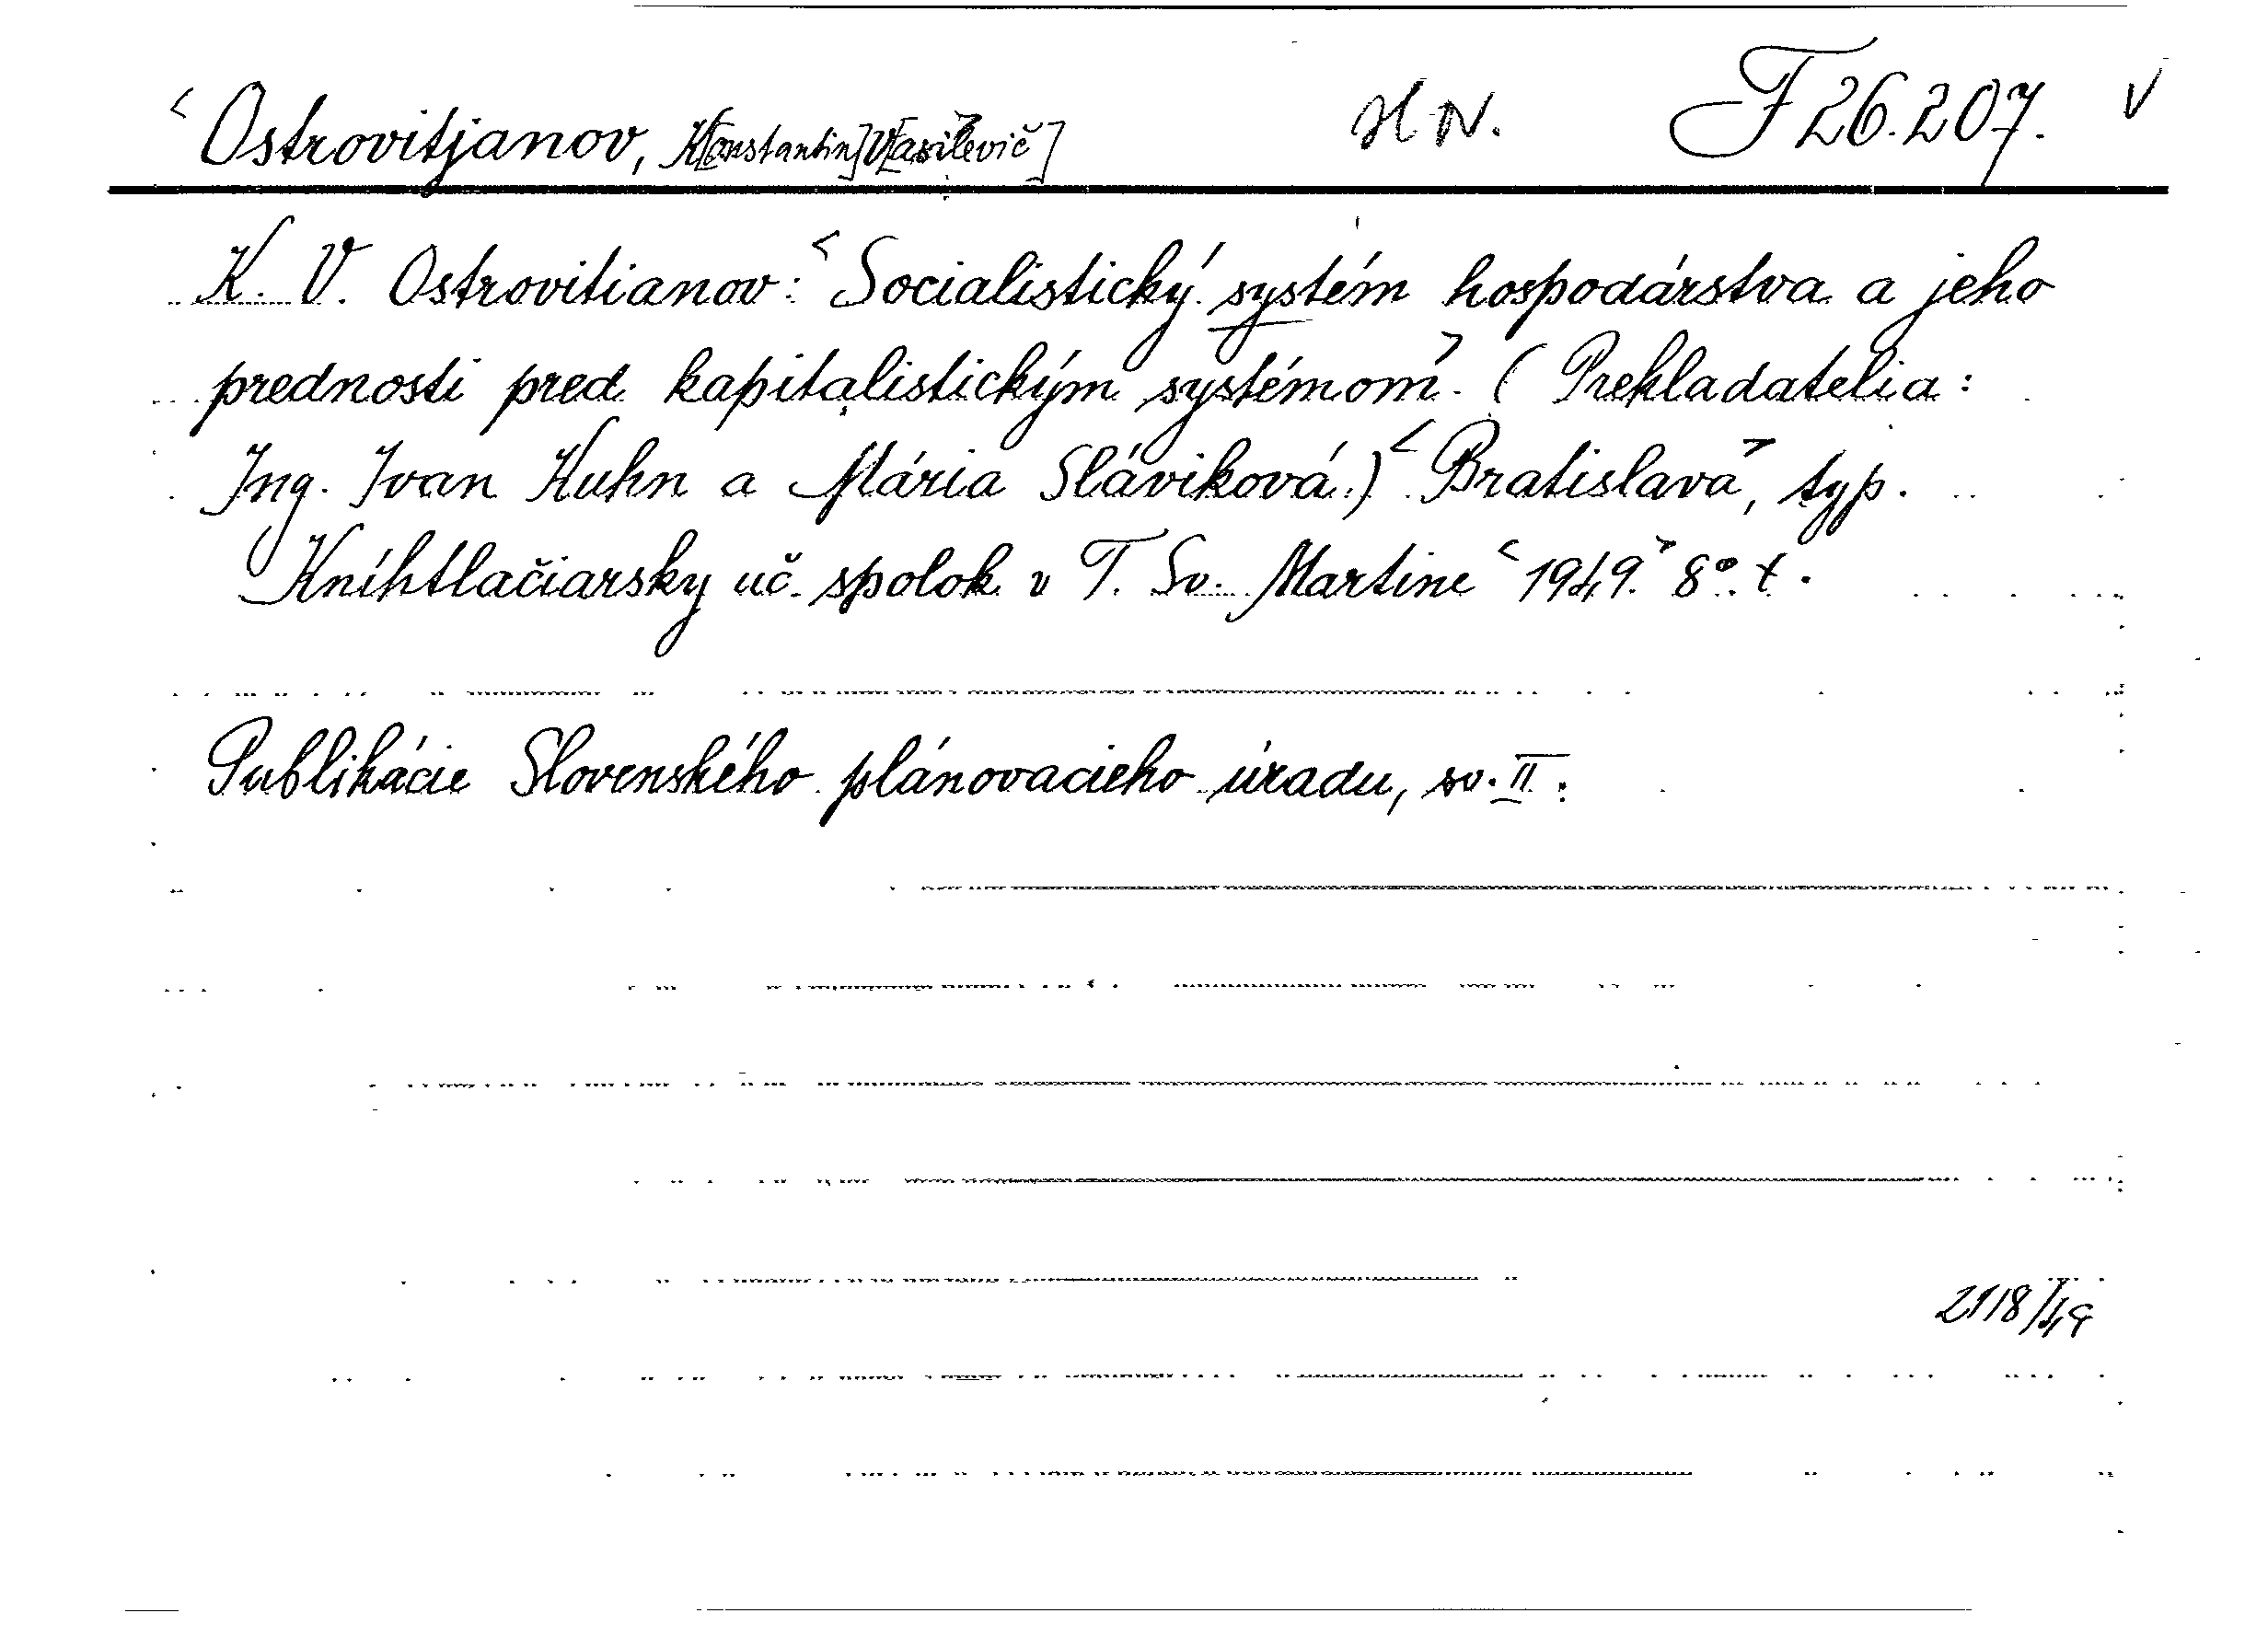 <Ostrovitjanov, K[onstantin] V[asiľevič] H N. F 26.207. V
K. V. Ostrovitianov: <Socialistický systém hospodárstva a jeho
prednosti pred kapitalistickým systémom>. (Prekladatelia:
Ing. Ivan Kuhn a Mária Sláviková.) <Bratislava>, typ.
Kníhtlačiarsky uč. spolok v T. Sv. Martine <1949.> 8° t.
Publikácie Slovenského plánovacieho úradu, sv. II.
2118/49